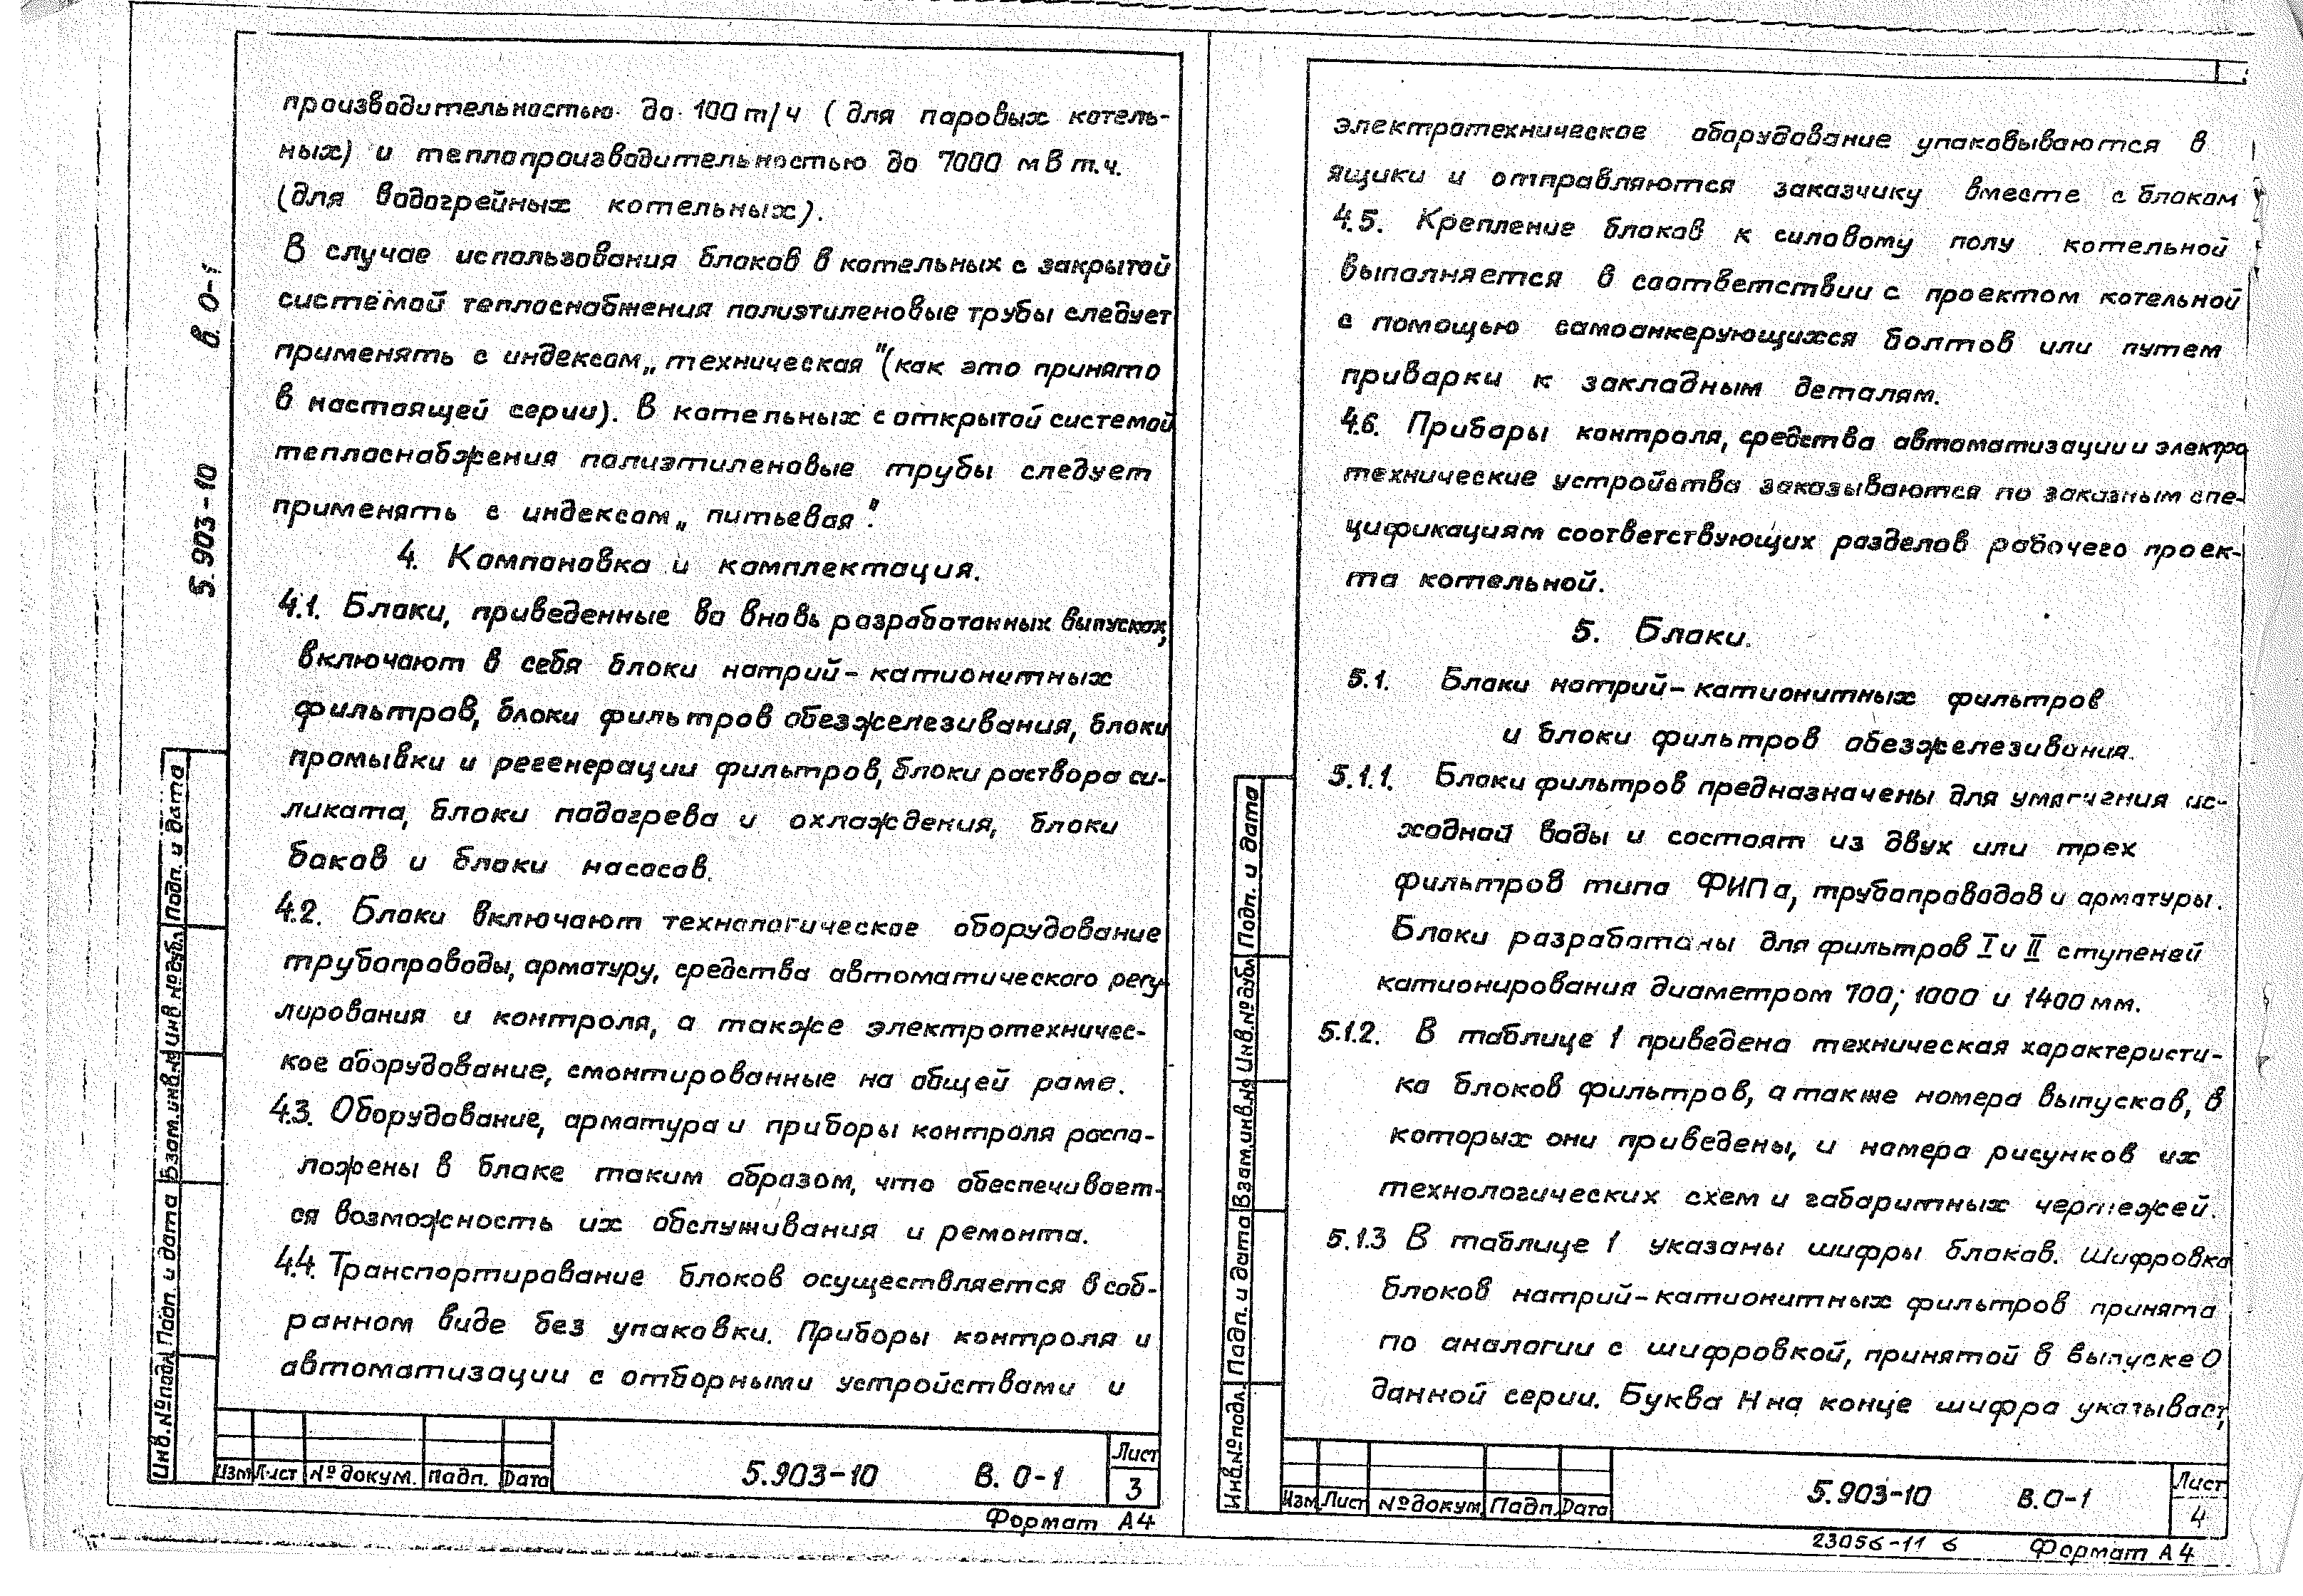 производительностью до 100 т/ч ( для паровых котель-
ных) и теплопроизводительностью до 7000 мВт.ч.
(для водогрейных котельных).
В случае использования блоков в котельных с закрытой
системой теплоснабжения полиэтиленовые трубы следует
применять с индексом „техническая" (как это принято
в настоящей серии). В котельных с открытой системой
теплоснабжения полиэтиленовые трубы следует
применять с индексом „питьевая".
4. Компановка и комплектация.
4.1. Блоки, приведенные во вновь разработанных выпусках,
включают в себя блоки натрий-катионитных
фильтров, блоки фильтров обезжелезивания, блоки
промывки и регенерации фильтров, блоки раствора си-
ликата, блоки подогрева и охлаждения, блоки
баков и блоки насосов.
4.2. Блоки включают технологическое оборудование
трубопроводы, арматуру, средства автоматического регу-
лирования и контроля, а также электротехничес-
кое оборудование, смонтированные на общей раме.
4.3. Оборудование, арматура и приборы контроля распо-
ложены в блоке таким образом, что обеспечивает-
ся возможность их обслуживания и ремонта.
4.4. Транспортирование блоков осуществляется в соб-
ранном виде без упаковки. Приборы контроля и
автоматизации с отборными устройствами и
5.903-10 В. 0-1
Инв.№подл. Подп. и дата Взам.инв.№ Инв.№дубл. Подп. и дата
Изм Лист № докум. Подп. Дата
5.903-10 В. 0-1
Лист
3
Формат А4
электротехническое оборудование упаковываются в
ящики и отправляются заказчику вместе с блоком
4.5. Крепление блоков к силовому полу котельной
выполняется в соответствии с проектом котельной
с помощью самоанкерующихся болтов или путем
приварки к закладным деталям.
4.6. Приборы контроля, средства автоматизации и электро
технические устройства заказываются по заказным спе-
цификациям соответствующих разделов рабочего проек-
та котельной.
5. Блоки.
5.1. Блоки натрий-катионитных фильтров
и блоки фильтров обезжелезивания.
5.1.1. Блоки фильтров предназначены для умягчения ис-
ходной воды и состоят из двух или трех
фильтров типа ФИПа, трубопроводов и арматуры.
Блоки разработаны для фильтров I и II ступеней
катионирования диаметром 700; 1000 и 1400 мм.
5.1.2. В таблице 1 приведена техническая характеристи-
ка блоков фильтров, а также номера выпусков, в
которых они приведены, и номера рисунков их
технологических схем и габаритных чертежей.
5.1.3 В таблице 1 указаны шифры блоков. Шифровка
блоков натрий-катионитных фильтров принята
по аналогии с шифровкой, принятой в выпуске 0
данной серии. Буква Н на конце шифра указывает,
Инв.№подл. Подп. и дата Взам.инв.№ Инв.№дубл Подп. и дата
Изм Лист № докум. Подп. Дата
5.903-10 В.0-1
Лист
4
23056-11 6 Формат А4